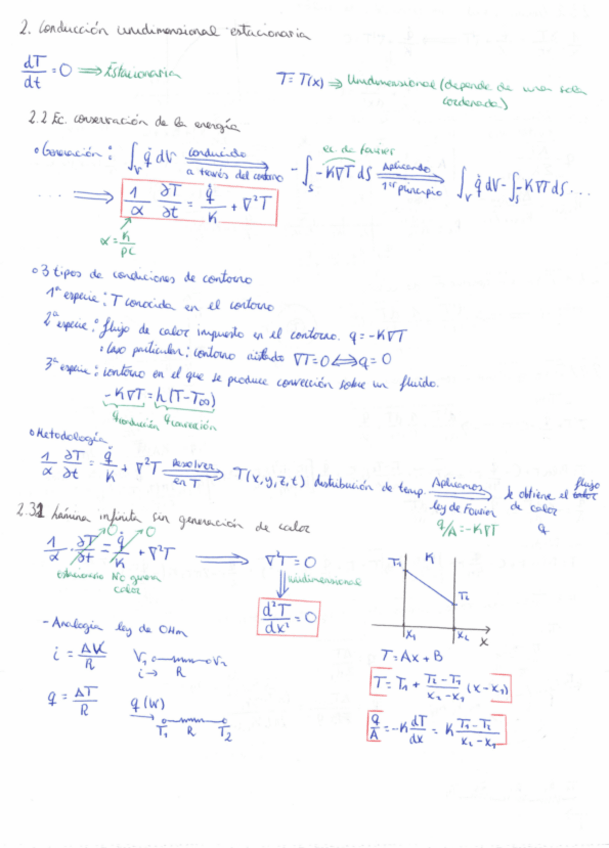 2. Conducción unidimensional estacionaria
dT/dt = 0 ⟹ Estacionaria
T = T(x) ⟹ Unidimensional (depende de una sola
coordenada)
2.2 Ec. conservación de la energía
• Generación: ∫_V q̇ dV conducido a través del contorno ⟹ -∫_S -K∇T dS ec. de Fourier Aplicando 1er principio ⟹ ∫_V q̇ dV - ∫_S -K∇T dS ...
... ⟹ 1/α ∂T/∂t = q̇/K + ∇²T
α = K/ρc
• 3 tipos de condiciones de contorno
1ª especie: T conocida en el contorno
2ª especie: flujo de calor impuesto en el contorno. q = -K∇T
: Caso particular: contorno aislado ∇T = 0 ⟺ q = 0
3ª especie: contorno en el que se produce convección sobre un fluido.
-K∇T = h(T-T∞)
q conducción q convección
• Metodología
1/α ∂T/∂t = q̇/K + ∇²T Resolver en T ⟹ T(x,y,z,t) distribución de temp. Aplicamos ley de Fourier ⟹ Se obtiene el flujo
q/A = -K∇T
de calor
q
2.3 Lámina infinita sin generación de calor
1/α · ∂T/∂t = q̇/K + ∇²T ⟹ ∇²T = 0
0 0
Estacionario No genera
calor
unidimensional
d²T/dx² = 0
T₁ K T₂
x₁ x₂ x
- Analogía ley de OHm
i = ΔV/R V₁ V₂
i → R
q = ΔT/R q (W)
T₁ R T₂
T = Ax + B
T = T₁ + (T₂-T₁)/(x₂-x₁) (x-x₁)
q/A = -K dT/dx = K (T₁-T₂)/(x₂-x₁)